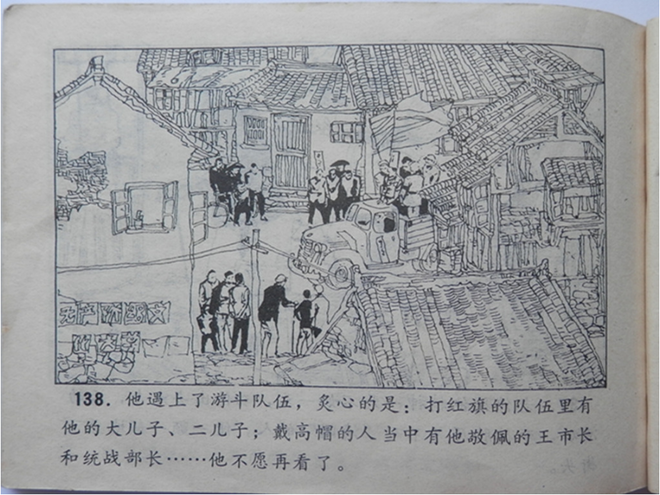 138. 他遇上了游斗队伍，炙心的是：打红旗的队伍里有
他的大儿子、二儿子；戴高帽的人当中有他敬佩的王市长
和统战部长……他不愿再看了。